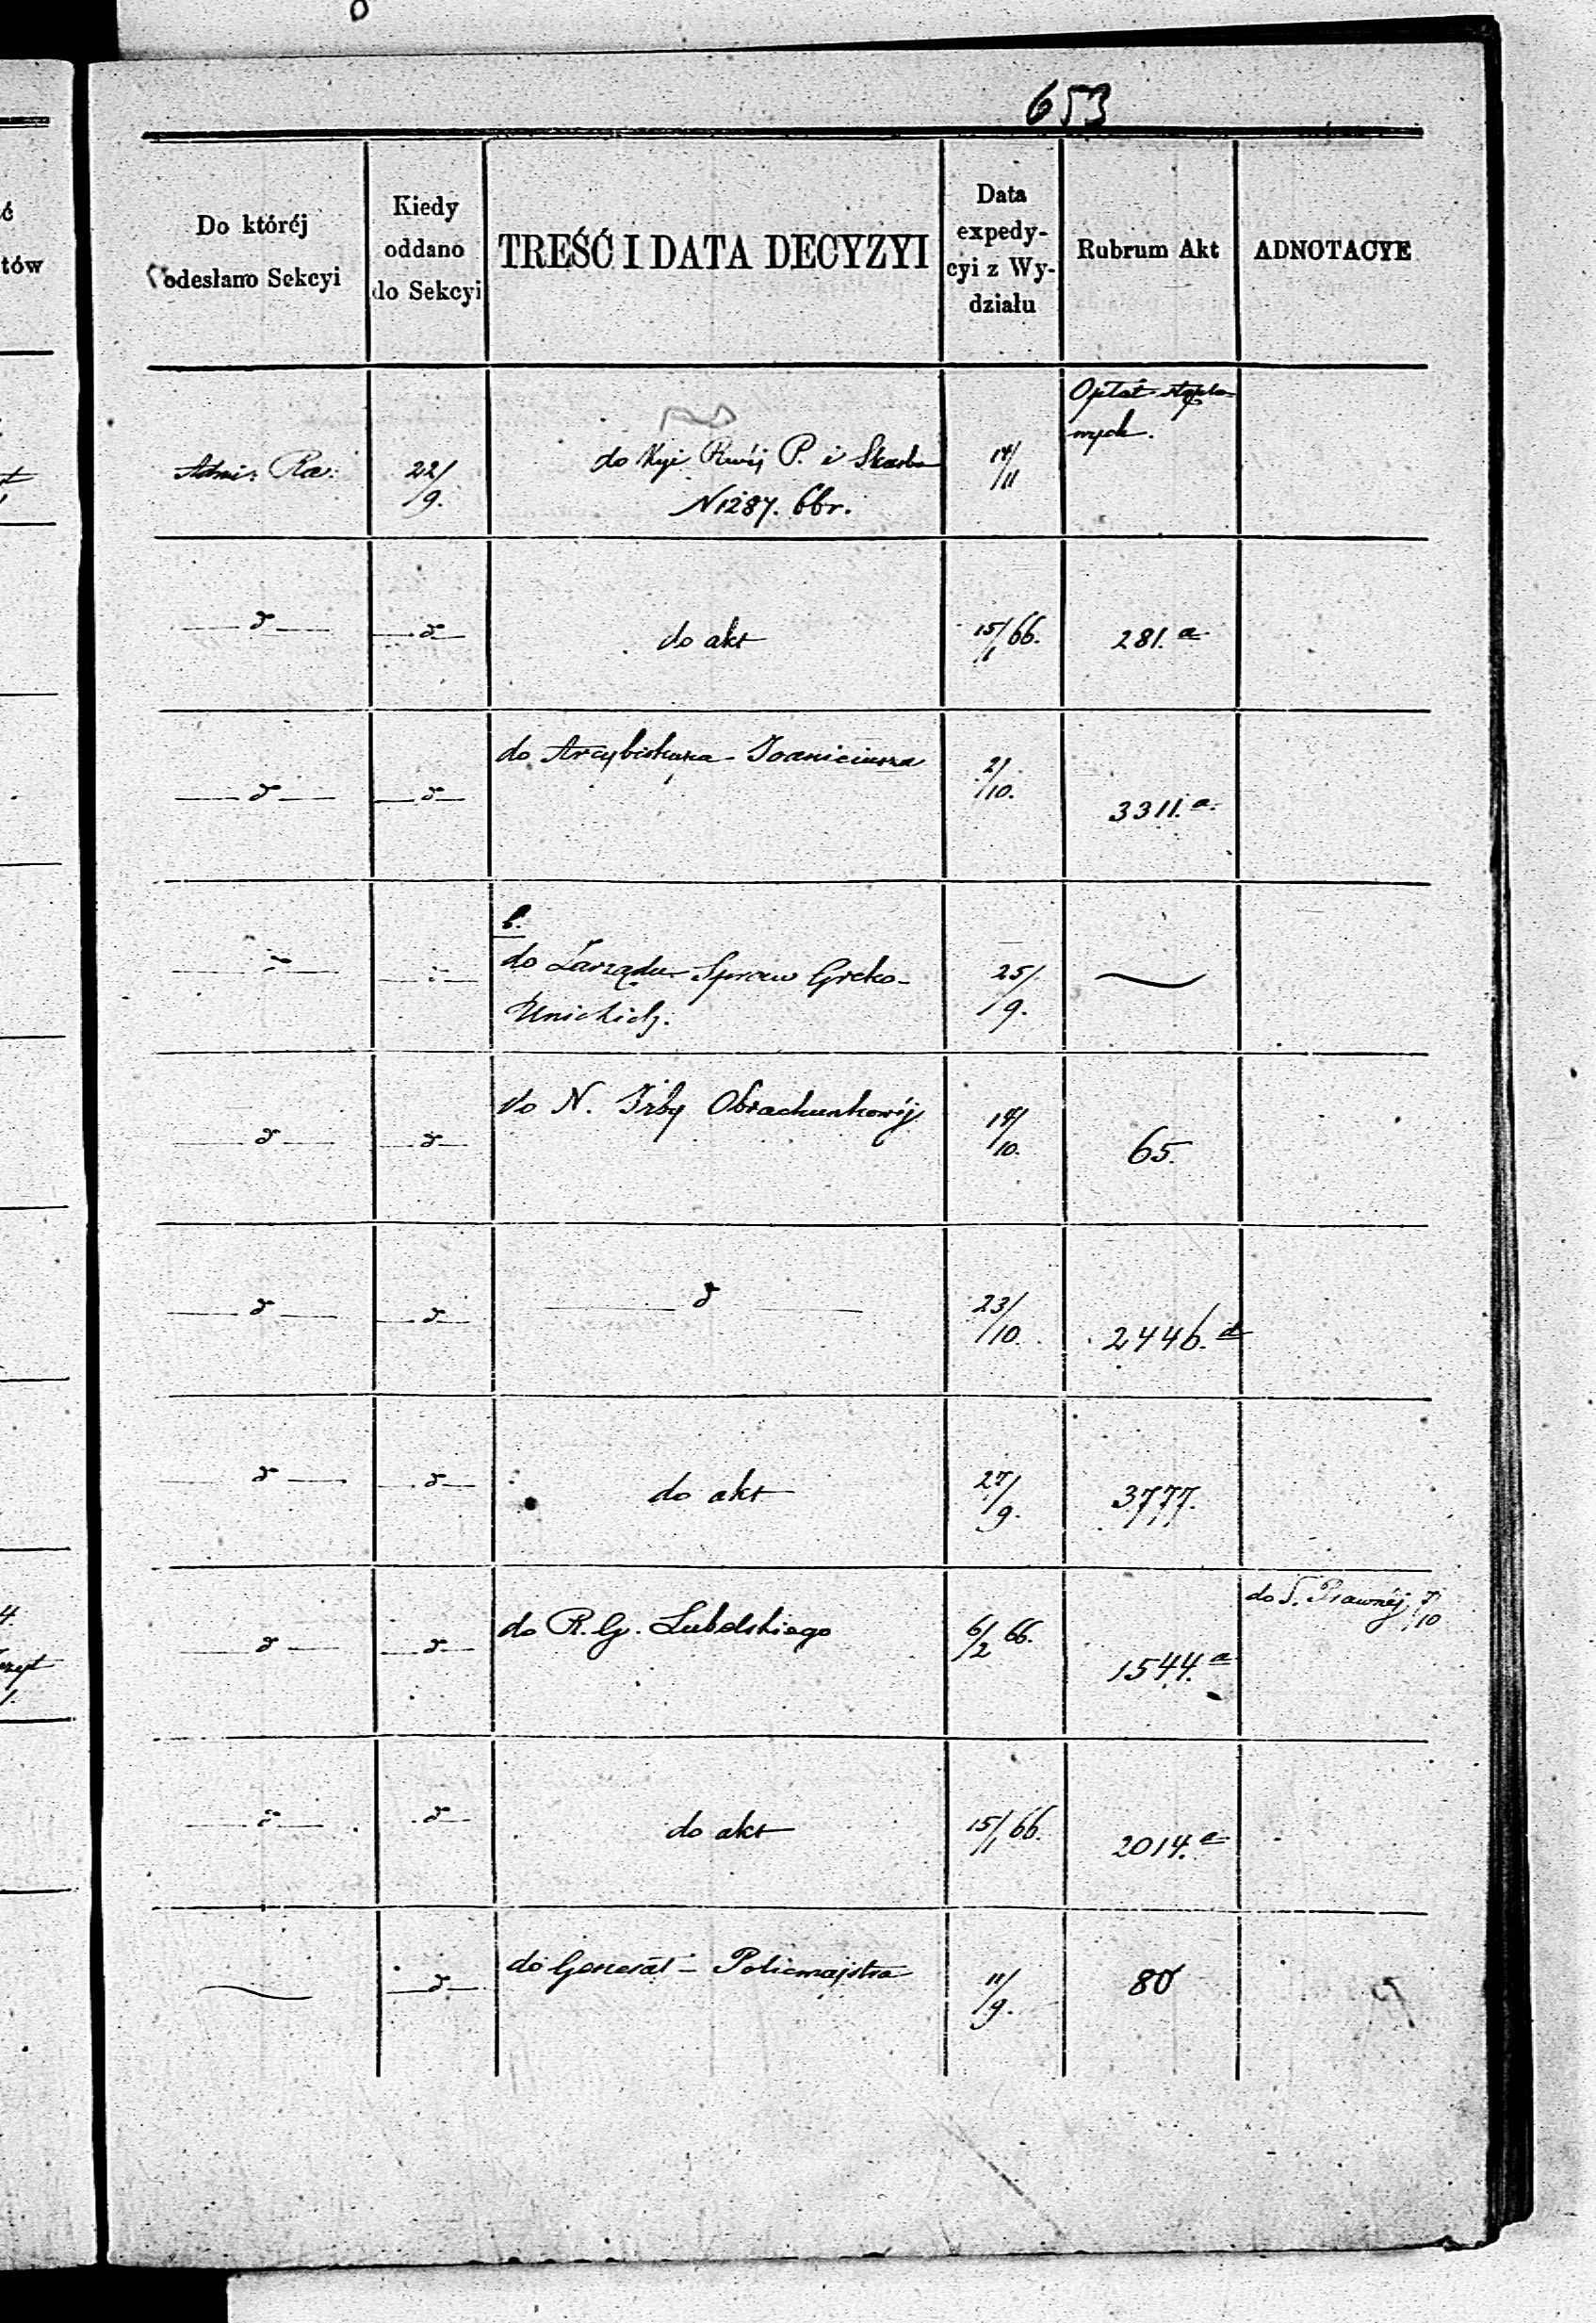 653
Do któréj
odesłano Sekcyi
Kiedy
oddano
do Sekcyi
TREŚĆ I DATA DECYZYI
Data
expedy-
cyi z Wy-
działu
Rubrum Akt
ADNOTACYE
Opłat stęplo-
wych.
Admi: Ra:
22/9.
do Kyi Rwéj P. i Skarbu
N 1287. 66r.
14/11
d
d
do akt
15/1 66.
281.a
d
d
do Arcybiskupa Joaniciusza
21/10.
3311.a.
b.
do Zarządu Spraw Greko-
Unickich.
25/9.
d
d
do N. Izby Obrachunkowéj
14/10.
65.
d
d
d
23/10.
2446.d
d
d
do akt
27/9.
3777.
d
d
do R. G. Lubelskiego
6/2 66.
1544.a
do S. Prawnéj 7/10
d
do akt
15/1 66.
2014.a
d
do Generał-Policmajstra
11/9.
80
ć
tów